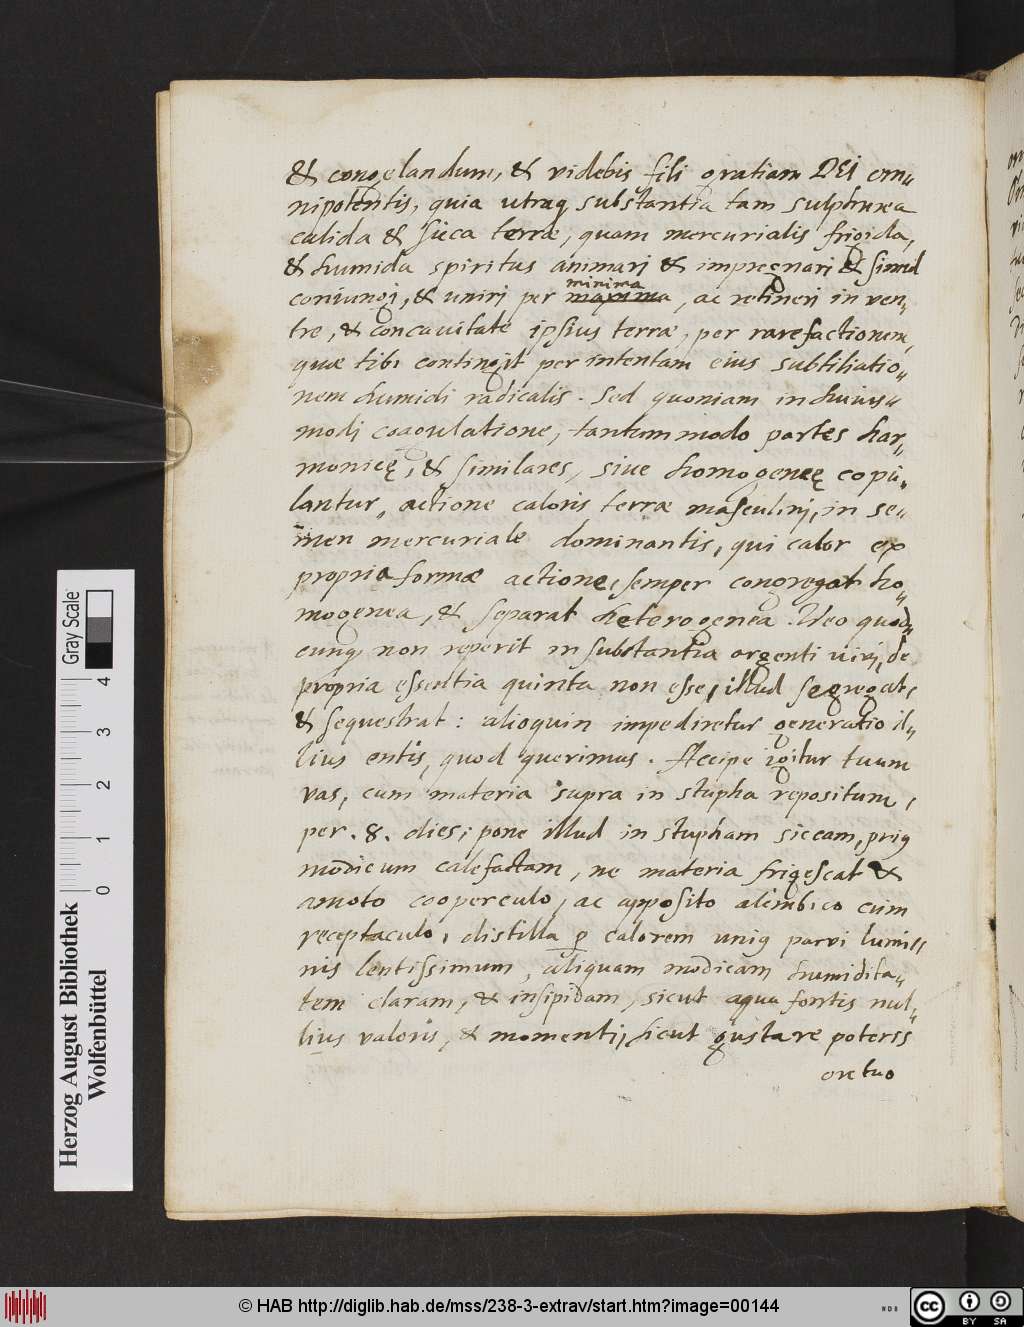 & congelandum, & videbis fili gratiam DEI om„
nipotentis, quia utraq substantia tam sulphurea
calida & sicca terræ, quam mercurialis frigida,
& humida spiritus animari & impregnari & simul
minima
coniungi, & uniri per maxima, ac retineri in ven„
tre, & concavitate ipsius terræ, per rarefactionem,
quæ tibi contingit per intentam eius subtiliatio„
nem humidi radicalis. Sed quoniam in huius„
modi coagulatione, tantummodo partes har„
monicę, & similares, sive homogeneę copu„
lantur, actione caloris terræ masculini, in se„
men mercuriale dominantis, qui calor ex
propria formæ actione, semper congregat ho„
mogenea, & separat heterogenea. Ideo quod„
cunq, non reperit in substantia argenti vivi, de
propria essentia quinta non esse, illud segregat,
& sequestrat: alioquin impediretur generatio il„
lius entis, quod querimus. Accipe igitur tuum
vas, cum materia supra in stupha repositum,
per .8. dies; pone illud in stupham siccam, priq
modicum calefactam, ne materia frigescat &
amoto cooperculo, ac apposito alimbico cum
receptaculo, distilla p calorem uniq parvi lumi„
nis lentissimum, aliquam modicam humidita„
tem claram, & insipidam, sicut aqua fortis nul„
lius valoris, & momenti, sicut gustare poteris
ore tuo
Gray Scale
4
3
2
1
0
Herzog August Bibliothek
Wolfenbüttel
© HAB http://diglib.hab.de/mss/238-3-extrav/start.htm?image=00144
NDB
cc BY SA